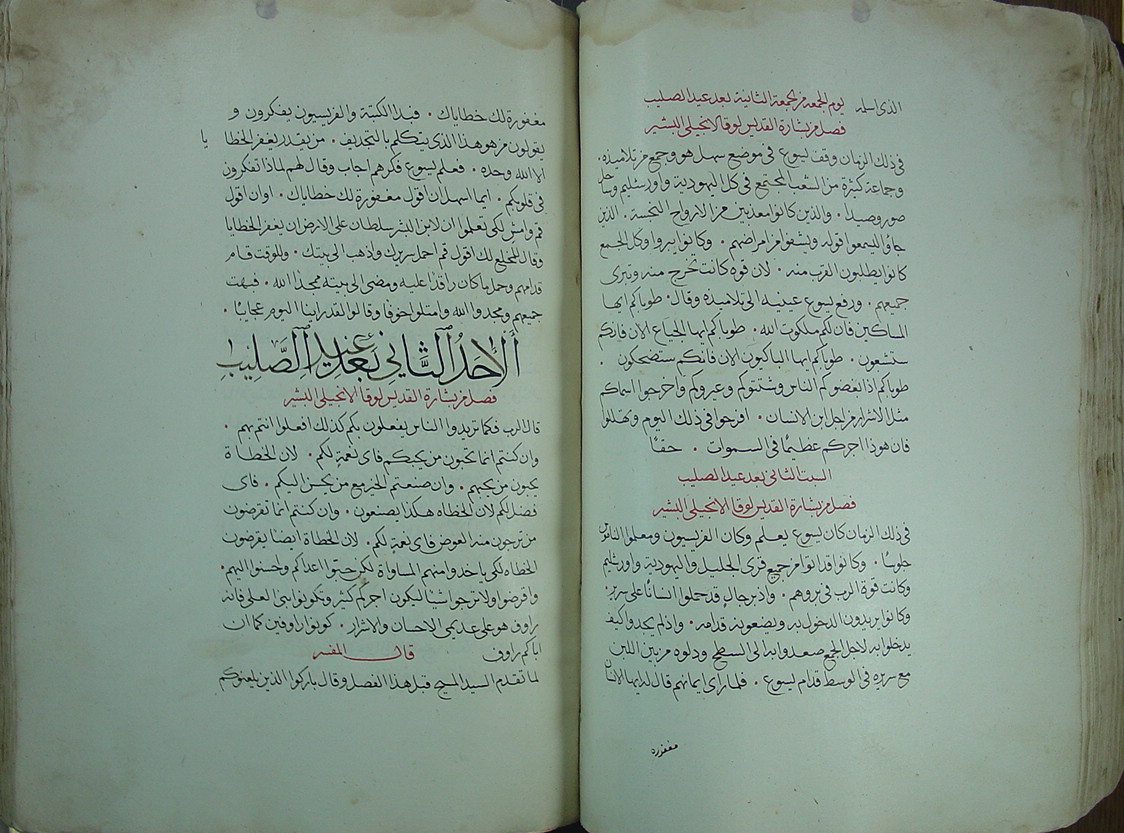 الذى اسلمه يوم الجمعة من الجمعة الثانية بعد عيد الصليب
فصل من بشارة القديس لوقا الانجيلى البشير
فى ذلك الزمان وقف يسوع فى موضع سهل هو وجمع من تلاميذه.
وجماعة كثيرة من الشعب المجتمع فى كل اليهودية واورشليم وساحل
صور وصيدا. والذين كانوا معذبين من الارواح النجسة. الذين
جاؤا ليسمعوا قوله ويشفوا من امراضهم. وكانوا يبروا وكل الجمع
كانوا يطلبون القرب منه. لان قوه كانت تخرج منه وتبرى
جميعهم. ورفع يسوع عينيه الى تلاميذه وقال. طوباكم ايها
المساكين فان لكم ملكوت الله. طوباكم ايها الجياع الان فانكم
ستشبعون. طوباكم ايها الباكيون الان فانكم ستضحكون.
طوباكم اذا ابغضوكم الناس وشتتوكم وعيروكم واخرجوا اسماكم
مثل الاشرار من اجل ابن الانسان. افرحوا فى ذلك اليوم وتهللوا
فان هوذا اجركم عظيمًا فى السموات. حقًا
السبت الثانى بعد عيد الصليب
فصل من بشارة القديس لوقا الانجيلى البشير
فى ذلك الزمان كان يسوع يعلم وكان الفريسيون ومعلموا الناموس
جلوسًا. وكانوا قد اتوا من جميع قرى الجليل واليهودية واورشليم
وكانت قوة الرب فى بروهم. واذ برجال قد حملوا انسانًا على سرير.
وكانوا يريدون الدخول به ويضعونه قدامه. واذ لم يجدوا كيف
يدخلوا به لاجل الجمع صعدوا به الى السطح ودلوه من بين اللبن
مع سريره فى الوسط قدام يسوع. فلما راى ايمانهم قال له ايها الانسان
مغفورة
مغفورة لك خطاياك. فبدا الكتبة والفريسيون يفكرون و
يقولون من هو هذا الذى يتكلم بالتجديف. من يقدر يغفر الخطايا
الا الله وحده. فعلم يسوع فكرهم اجاب وقال لهم لماذا تفكرون
فى قلوبكم. ايما اسهل ان اقول مغفورة لك خطاياك. او ان اقول
قم وامش لكى تعلموا ان لابن البشر سلطان على الارض ان يغفر الخطايا
وقال للمخلع لك اقول قم احمل سريرك واذهب الى بيتك. وللوقت قام
قدامهم وحمل ما كان راقدًا عليه ومضى الى بيته ممجدًا الله. فبهت
جميعهم ومجدوا الله وامتلوا خوفًا وقالوا لقد راينا اليوم عجايبًا.
اَلْاَحَدُ الثَّانِي بَعْدَ عِيدِ الصَّلِيبِ
فصل من بشارة القديس لوقا الانجيلى البشير
قال الرب فكما تريدوا الناس يفعلون بكم كذلك افعلوا انتم بهم.
وان كنتم انما تحبون من يحبكم فاى نعمة لكم. لان الخطاة
يحبون من يحبهم. وان صنعتم الخير مع من يحسن اليكم. فاى
فضل لكم لان الخطاه هكذا يصنعون. وان كنتم انما تقرضون
من ترجون منه العوض فاى نعمة لكم. لان الخطاة ايضا يقرضون
الخطاه لكى ياخدوا منهم المساواة لكن حبوا اعداكم وحسنوا اليهم.
واقرضوا ولا ترجوا شيًا ليكون اجركم كثير وتكونوا بنى العلى فانه
راوف هو على عديمى الاحسان والاشرار. كونوا راوفين كما ان
اباكم راوف قال المفسر
لما تقدم السيد المسيح قبل هذا الفصل وقال باركوا الذين يلعنوكم